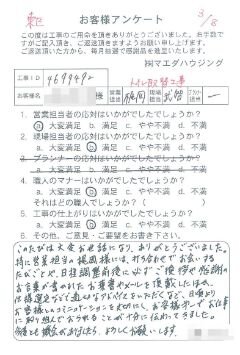 お客様アンケート 3/8
この度は工事のご用命を頂きありがとうございました。お手数で
すがご記入頂き、ご返送頂きますようお願い申し上げます。
ご返送頂いた方から、毎月抽選で感謝品を進呈いたします。
㈱マエダハウジング
工事ID 4699492 トイレ取替工事
お客様名 営業担当 現場担当
1. 営業担当者の応対はいかがでしたでしょうか?
a 大変満足 b. 満足 c. やや不満 d. 不満
2. 現場担当者の応対はいかがでしたでしょうか?
a 大変満足 b. 満足 c. やや不満 d. 不満
3. プランナーの応対はいかがでしたでしょうか?
a. 大変満足 b. 満足 c. やや不満 d. 不満
4. 職人のマナーはいかがでしたでしょうか?
a 大変満足 b. 満足 c. やや不満 d. 不満
それはどの職人でしょうか?( )
5. 工事の仕上がりはいかがでしたでしょうか?
a 大変満足 b. 満足 c. やや不満 d. 不満
6. その他、ご意見・ご希望をお聞かせ下さい。
このたびは大変お世話になり、ありがとうございました。
特に営業担当の 様には、打ち合わせでお会いする
たびごとや、日程調整前後に必ずご挨拶や感謝の
お言葉が書かれたお葉書やメールを頂戴したほか、
仕様選定などで適切なアドバイスをいただくなど、日頃より
お客様とのコミュニケーションを大切にし、お客様 でお仕事
に取り組んでおられることが十分に伝わってきました。
今後とも機会がありましたら、よろしくお願いします。